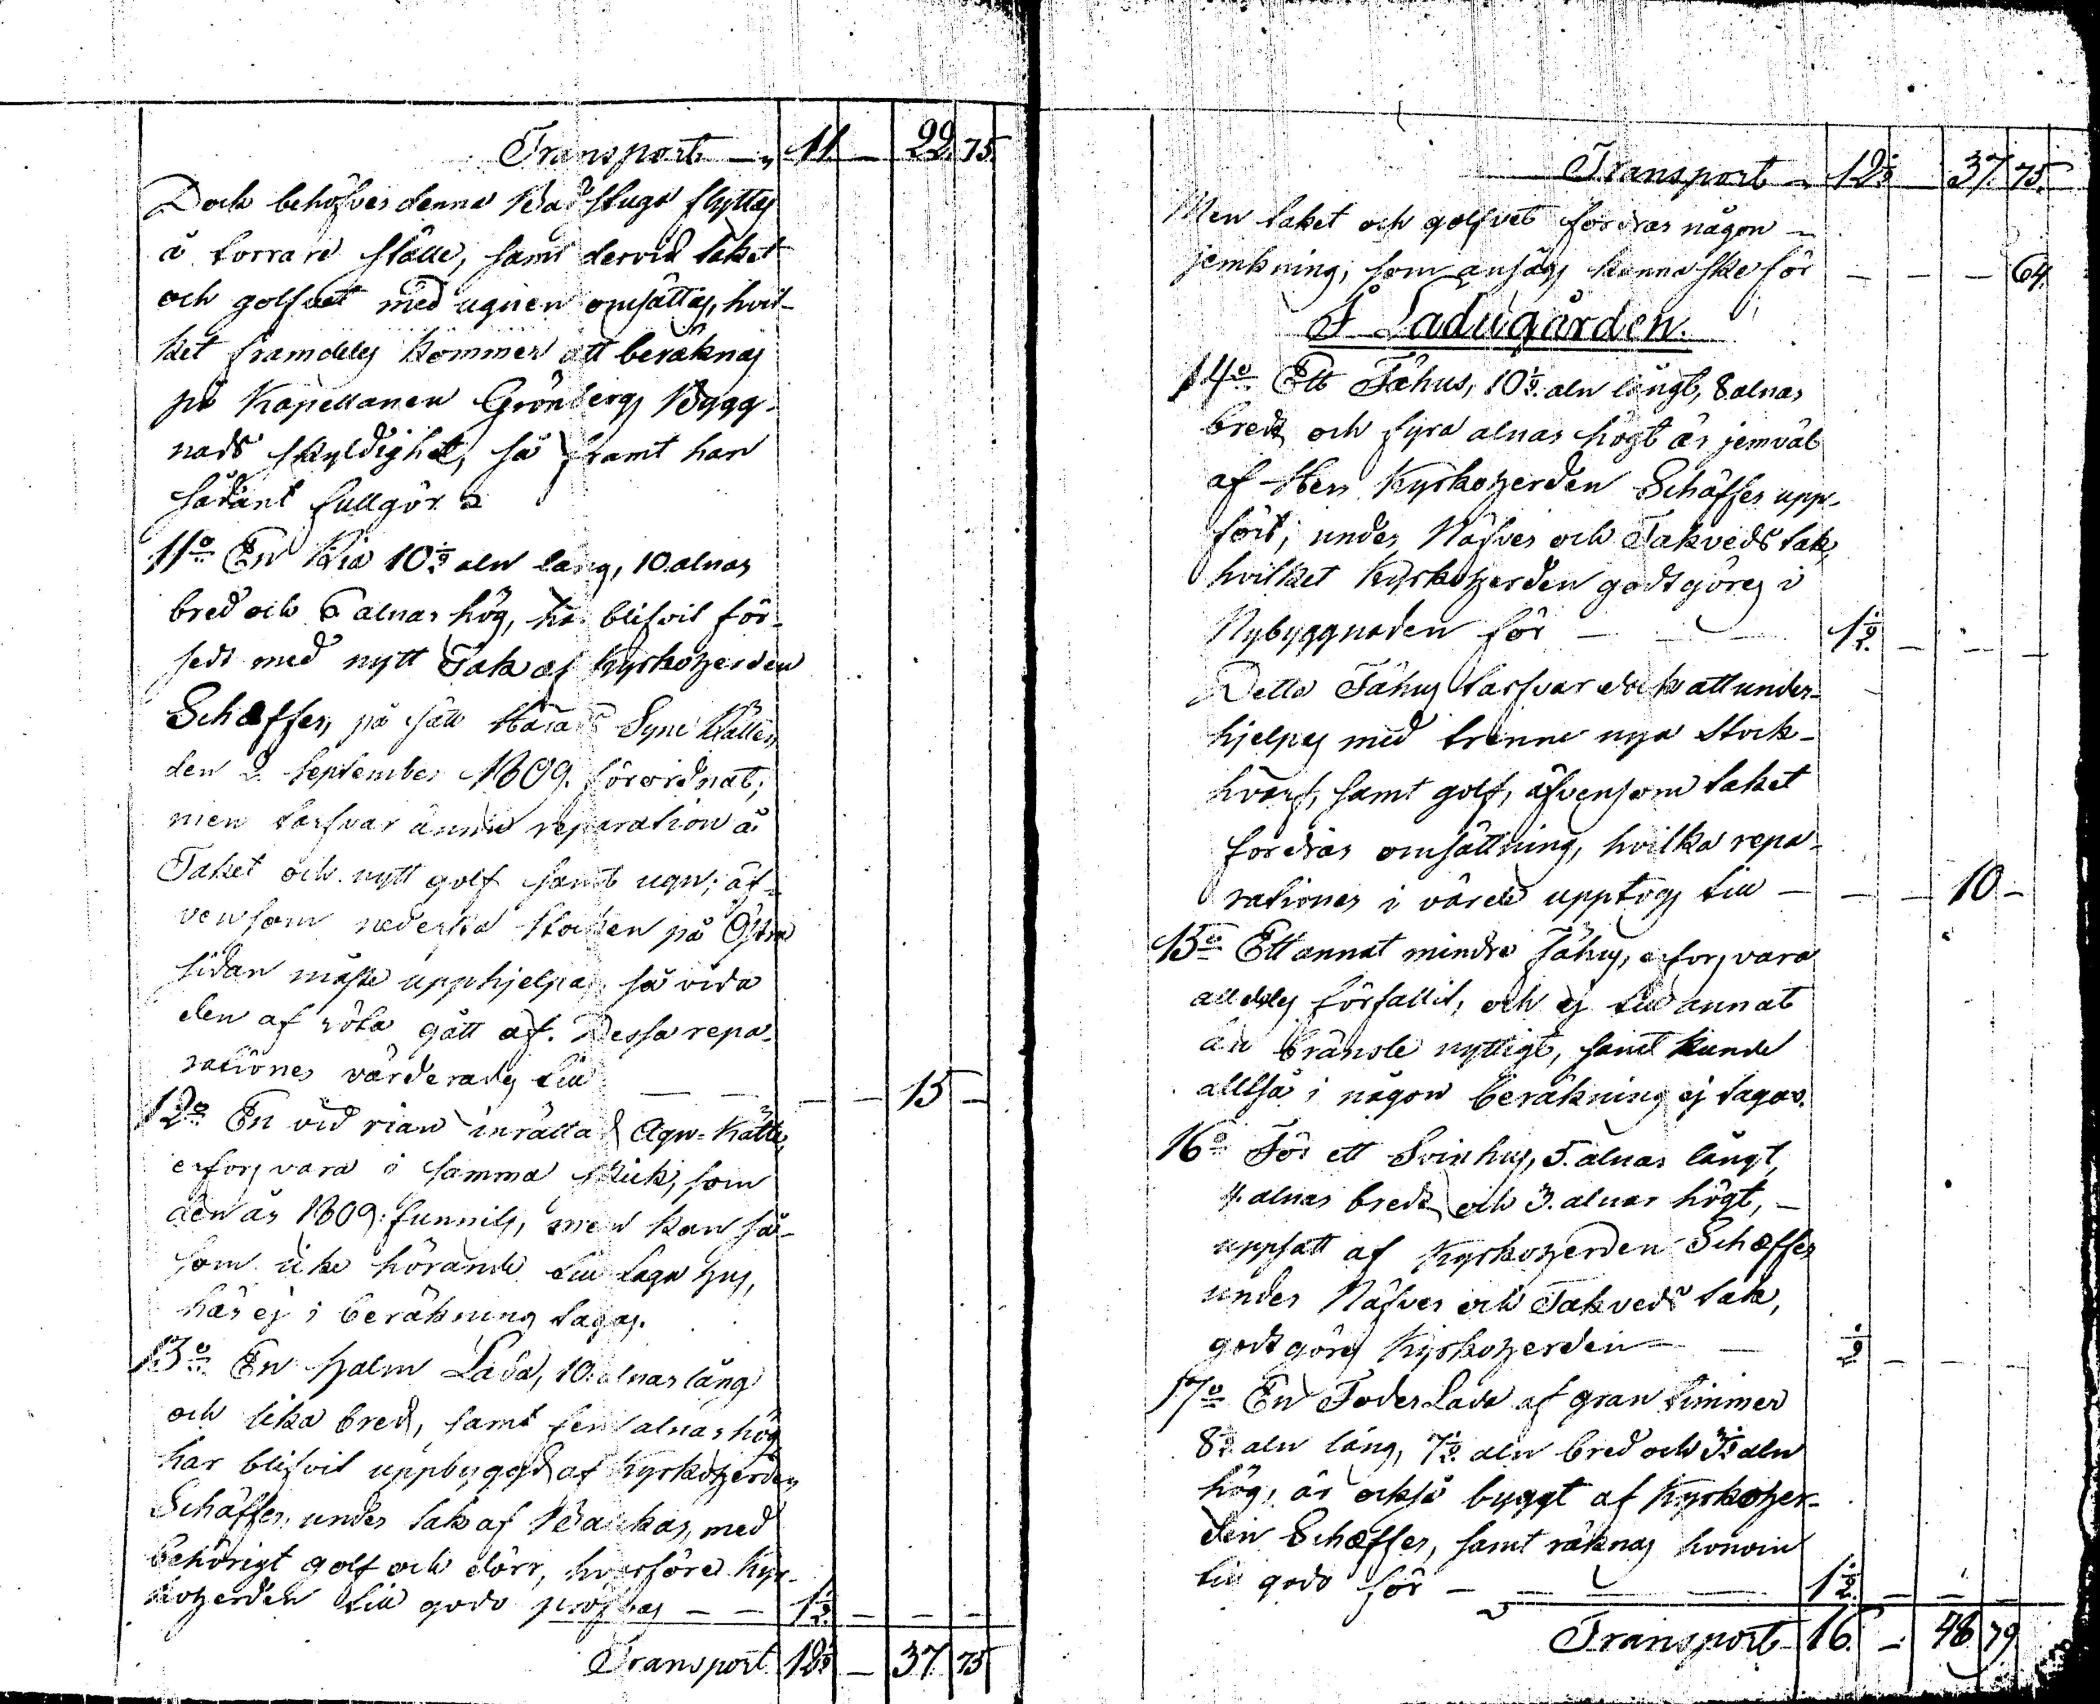 Transport 11. — 22. 75.
Dock behöfver denna Badstuga flyttas
å torrare ställe, samt dervid taket
och golfvet med ugnen omsättas, hvil-
ket framdeles kommer att beräknas
på Kapellanen Grönbergs Bygg-
nads skyldighet, så framt han
sådant fullgör
11o En Ria 10½ aln lång, 10. alnar
bred och 6 alnar hög, har blifvit för-
sedt med nytt Tak af Kyrkoherden
Schæffer, på sätt Härads Syne Rätten
den 2. September 1809. förordnat;
men tarfvar ännu reparation å
Taket och nytt golf samt ugn; äf-
vensom nedersta stocken på Östra
sidan måste upphjelpas, så vida
den af röta gått af. Dessa repa-
rationer värderades till — — — — 15 —
12o En vid rian inrättad Agn-Kätte,
erfors vara i samma skick, som
den år 1809. funnits, men kan så-
som icke hörande till Laga hus,
här ej i beräkning tagas.
13o En halm Lada, 10. alnar lång
och lika bred, samt fem alnar hög
har blifvit uppbyggd af Kyrkoherden
Schäffer, under tak af Backar, med
behörigt golf och dörr, hvarföre Kyr-
koherden till godo föres — — 1½. — — —
Transport 12½ — 37. 75
Transport — 12½ — 37. 75.
Men taket och golfvet fordrar någon —
jemkning, som ansågs kunna ske för — — — 64.
I Ladugården.
14o Ett Fähus, 10½. aln långt, 8 alnar
bredt och fyra alnar högt är jemväl
af Herr Kyrkoherden Schäffer upp-
fört, under Näfver och Takveds tak,
hvilket Kyrkoherden godtgöres i
Nybyggnaden för — — — 1½. — — —
Detta Fähus tarfvar dock att under-
hjelpas med trenne nya stock-
hvarf, samt golf, äfvensom taket
fordrar omsättning, hvilka repa-
rationer i värde upptogs till — — — 10 —
15o Ett annat mindre Fähus, erfors vara
alldeles förfallit, och ej till annat
än bränsle nyttigt, samt kunde
alltså i någon beräkning ej tagas.
16o För ett Svinhus, 5. alnar långt,
4. alnar bredt och 3. alnar högt, —
uppsatt af Kyrkoherden Schæffer
under Näfver och Takveds tak,
godtgöres Kyrkoherden — — ½ — — —
17o En Foder Lada af gran timmer
8½ aln lång, 7½. aln bred och 3½ aln
hög, är också byggt af Kyrkoher-
den Schæffer, samt räknas honom
till godo för — — — 1½. — — —
Transport — 16. — 48 79